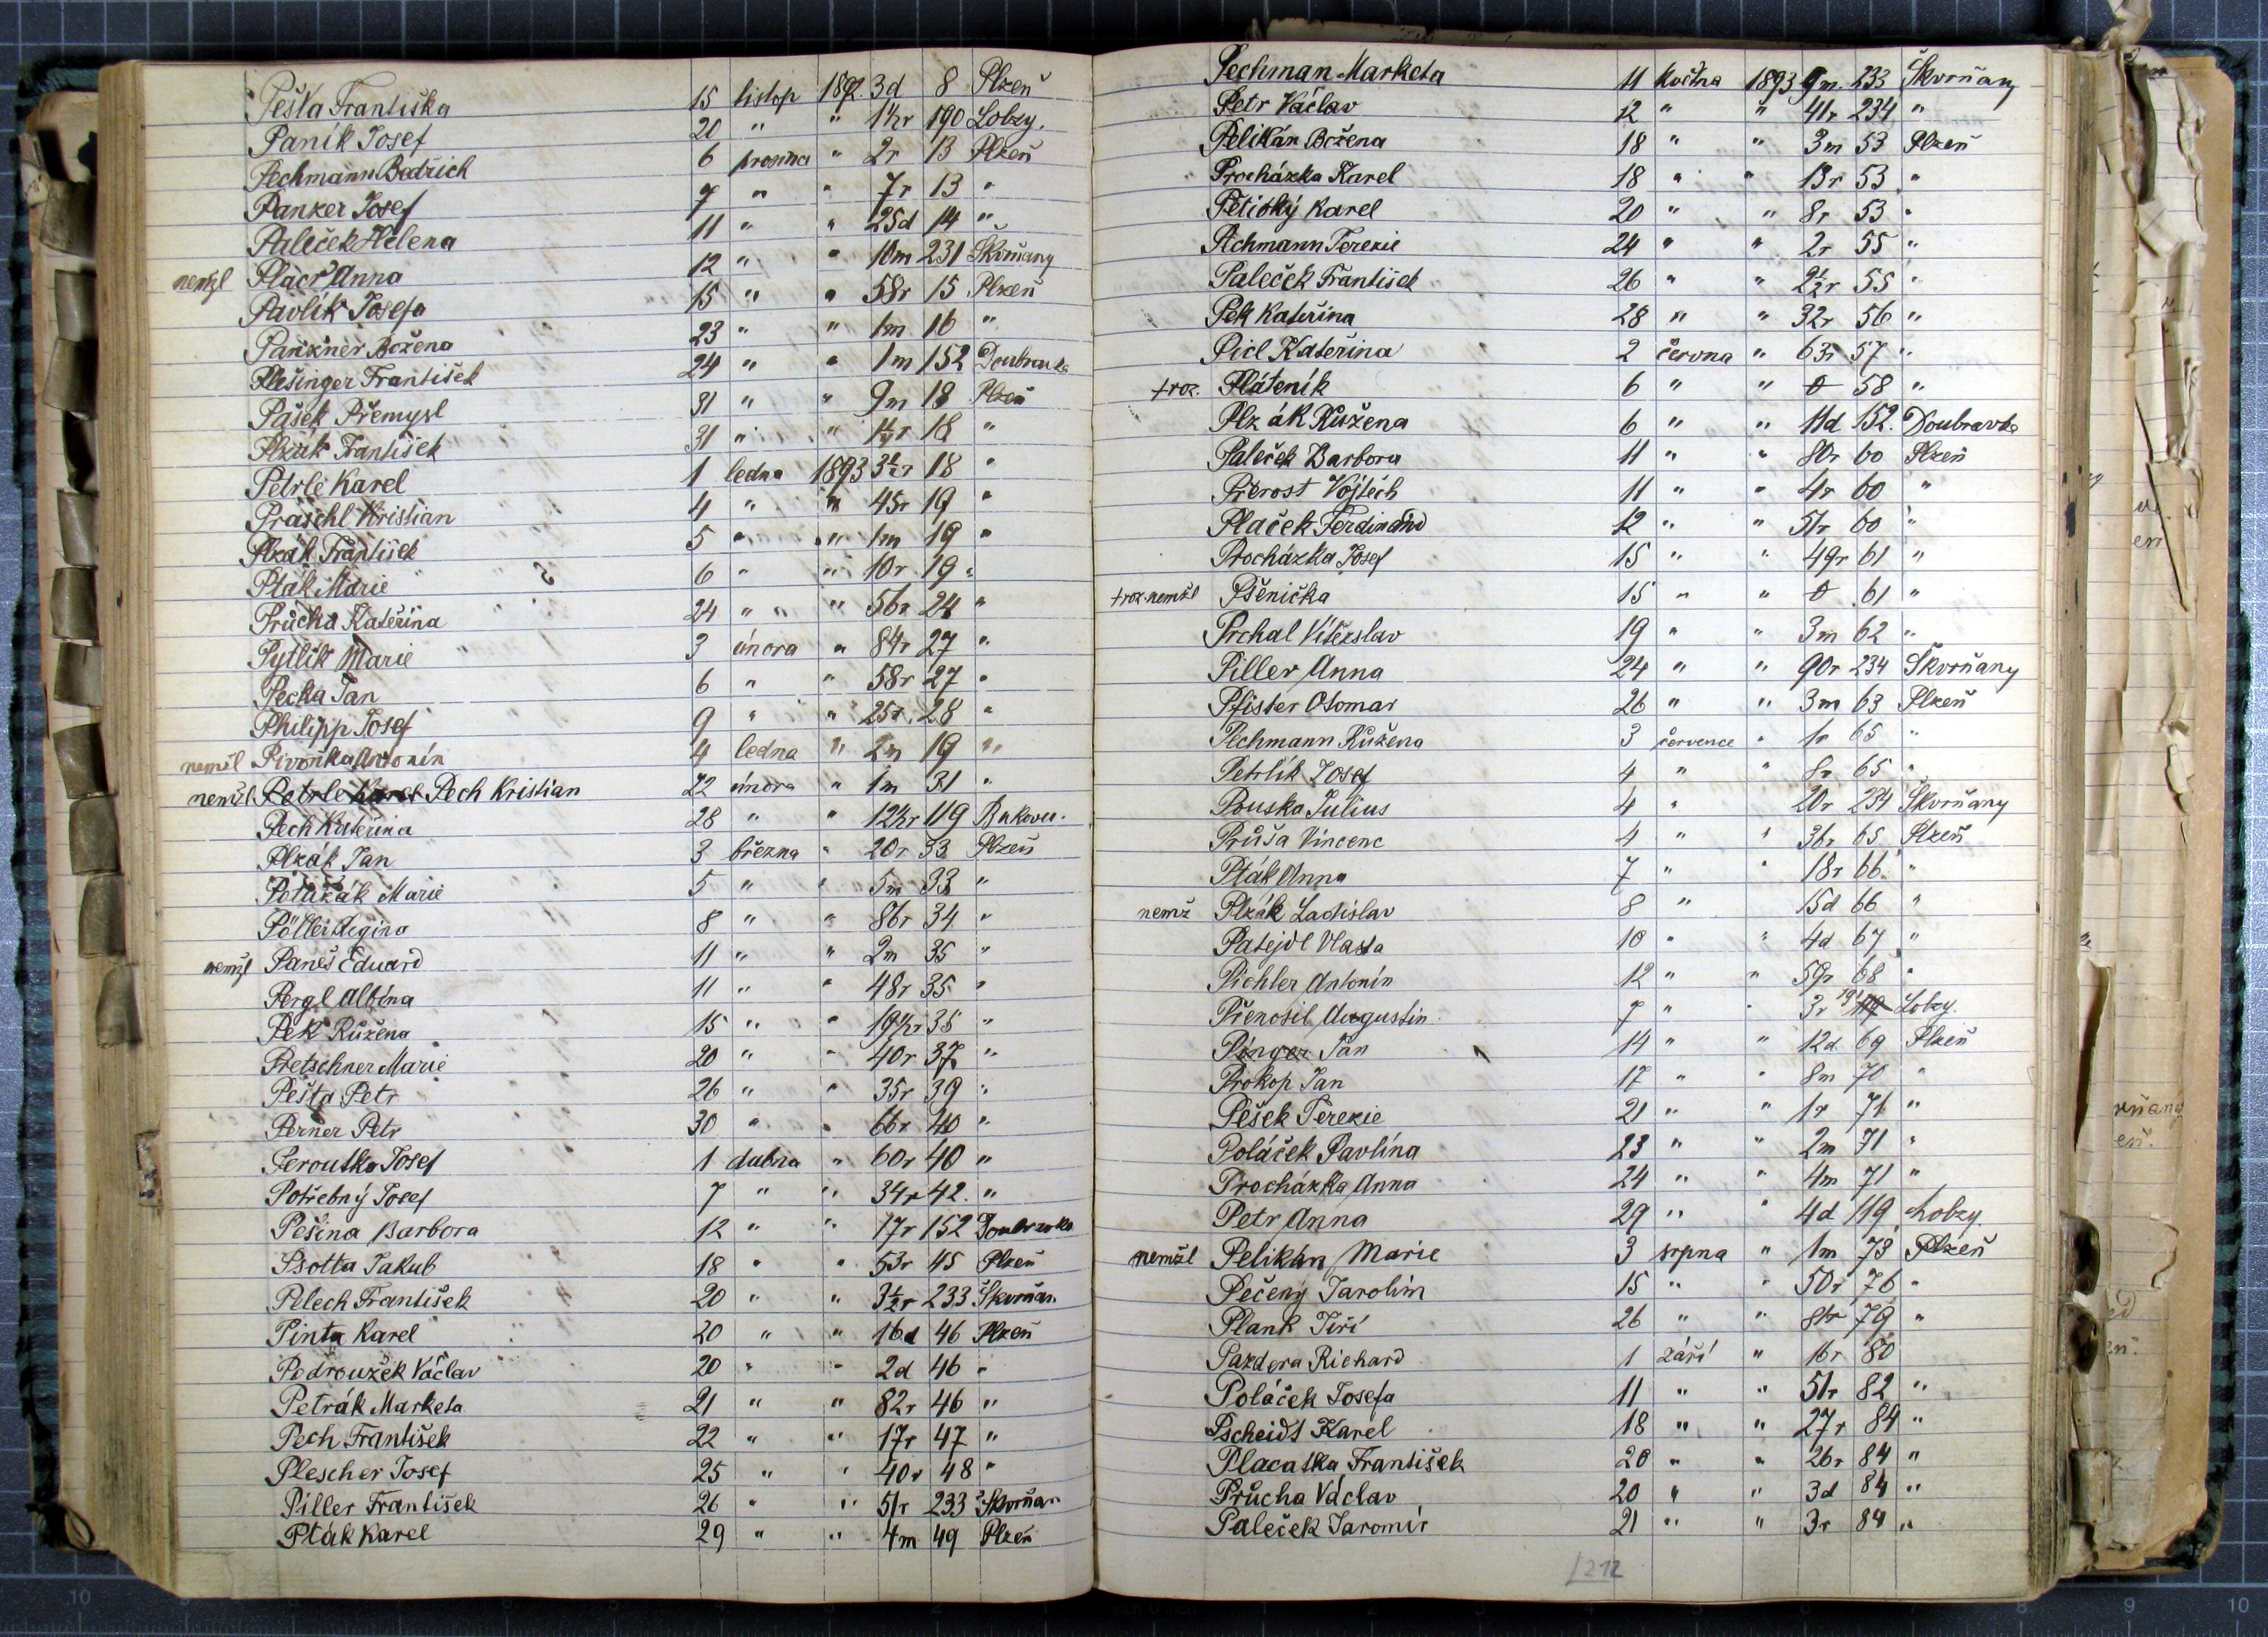 Pešta Františka 15 listop 1892. 3d 8 Plzeň
Paník Josef 20 " " 1½r 190 Lobzy.
Pechmann Bedřich 6 prosince " 2r 13 Plzeň
Panzer Josef 7 " " 7r 13 "
Paleček Helena 11 " " 25d 14 "
nemžl Placr Anna 12 " " 10m 231 Škvrňany
Pavlík Josefa 15 " " 58r 15 Plzeň
Pankner Božena 23 " " 1m 16 "
Plešinger František 24 " " 1m 152 Doubravka
Pašek Přemysl 31 " " 9m 18 Plzeň
Plzák František 31 " " 1¼r 18 "
Petrle Karel 1 ledna 1893 3½r 18 "
Praschl Kristian 4 " " 45r 19 "
Plzák František 5 " " 1m 19 "
Pták Marie 6 " " 10r 19 "
Průcha Kateřina 24 " " 56r 24 "
Pytlík Marie 3 února " 84r 27 "
Pecka Jan 6 " " 58r 27 "
Philipp Josef 9 " " 25r 28 "
nemžl Pivoňka Antonín 4 ledna " 2m 19 "
nemžl Petrle Karel Pech Kristian 22 února " 1m 31 "
Pech Kateřina 28 " " 12½r 119 Bukovec.
Plzák Jan 3 března " 20r 33 Plzeň
Polazák Marie 5 " " 5m 33 "
Pöllei Regina 8 " " 86r 34 "
nemžl Paneš Eduard 11 " " 2m 35 "
Pergl Albína 11 " " 48r 35 "
Pek Růžena 15 " " 19½r 35 "
Pretschner Marie 20 " " 40r 37 "
Pešta Petr 26 " " 35r 39 "
Perner Petr 30 " " 66r 40 "
Peroutka Josef 1 dubna " 60r 40 "
Potřebný Josef 7 " " 34r 42. "
Pešina Barbora 12 " " 17r 152 Doubravka
Psotta Jakub 18 " " 53r 45 Plzeň
Pelech František 20 " " 3½r 233 Škvrňan
Pinta Karel 20 " " 16d 46 Plzeň
Pedroužek Václav 20 " " 2d 46 "
Petrák Marketa 21 " " 82r 46 "
Pech František 22 " " 17r 47 "
Plescher Josef 25 " " 40r 48 "
Piller František 26 " " 51r 233 Škvrňan
Pták Karel 29 " " 4m 49 Plzeň
Pechman Marketa 11 května 1893 9m. 233 Škvrňany
Petr Václav 12 " " 41r 234 "
Pelikán Božena 18 " " 3m 53 Plzeň
Procházka Karel 18 " " 13r 53 "
Petický Karel 20 " " 8r 53 "
Pechmann Terezie 24 " " 2r 55 "
Paleček František 26 " " 2½r 55 "
Pek Kateřina 28 " " 32r 56 "
Picl Kateřina 2 června " 63r 57 "
+roz. Pláteník 6 " " 0 58 "
Plzák Růžena 6 " " 11d 152. Doubravka
Paleček Barbora 11 " " 80r 60 Plzeň
Přerost Vojtěch 11 " " 4r 60 "
Plaček Ferdinand 12 " " 51r 60 "
Procházka Josef 15 " " 49r 61 "
+roz. nemžl Pšenička 15 " " 0 61 "
Prchal Vítězslav 19 " " 3m 62 "
Piller Anna 24 " " 90r 234 Škvrňany
Pfister Otomar 26 " " 3m 63 Plzeň
Pechmann Růžena 3 července " 1r 65 "
Petrlík Josef 4 " " 8r 65 "
Pouska Julius 4 " " 20r 234 Škvrňany
Průša Vincenc 4 " " 36r 65 Plzeň
Pták Anna 7 " " 18r 66. "
nemž Plzák Ladislav 8 " " 15d 66 "
Patejdl Vlasta 10 " " 4d 67 "
Pichler Antonín 12 " " 59r 68 "
Přenosil Augustin 7 " " 3r 191 Lobzy.
Pinger Jan 14 " " 12d 69 Plzeň
Prokop Jan 17 " " 8m 70 "
Pešek Terezie 21 " " 1r 71 "
Poláček Pavlína 23 " " 2m 71 "
Procházka Anna 24 " " 4m 71 "
Petr Anna 29 " " 4d 119 Lobzy.
nemžl Pelikán Marie 3 srpna " 1m 73 Plzeň
Pečený Jarolím 15 " " 50r 76 "
Plank Jiří 26 " " 81r 79 "
Pazdera Richard 1 září " 16r 80
Poláček Josefa 11 " " 51r 82 "
Pscheidt Karel 18 " " 27r 84 "
Placatka František 20 " " 26r 84 "
Průcha Václav 20 " " 3d 84 "
Paleček Jaromír 21 " " 3r 84 "
212